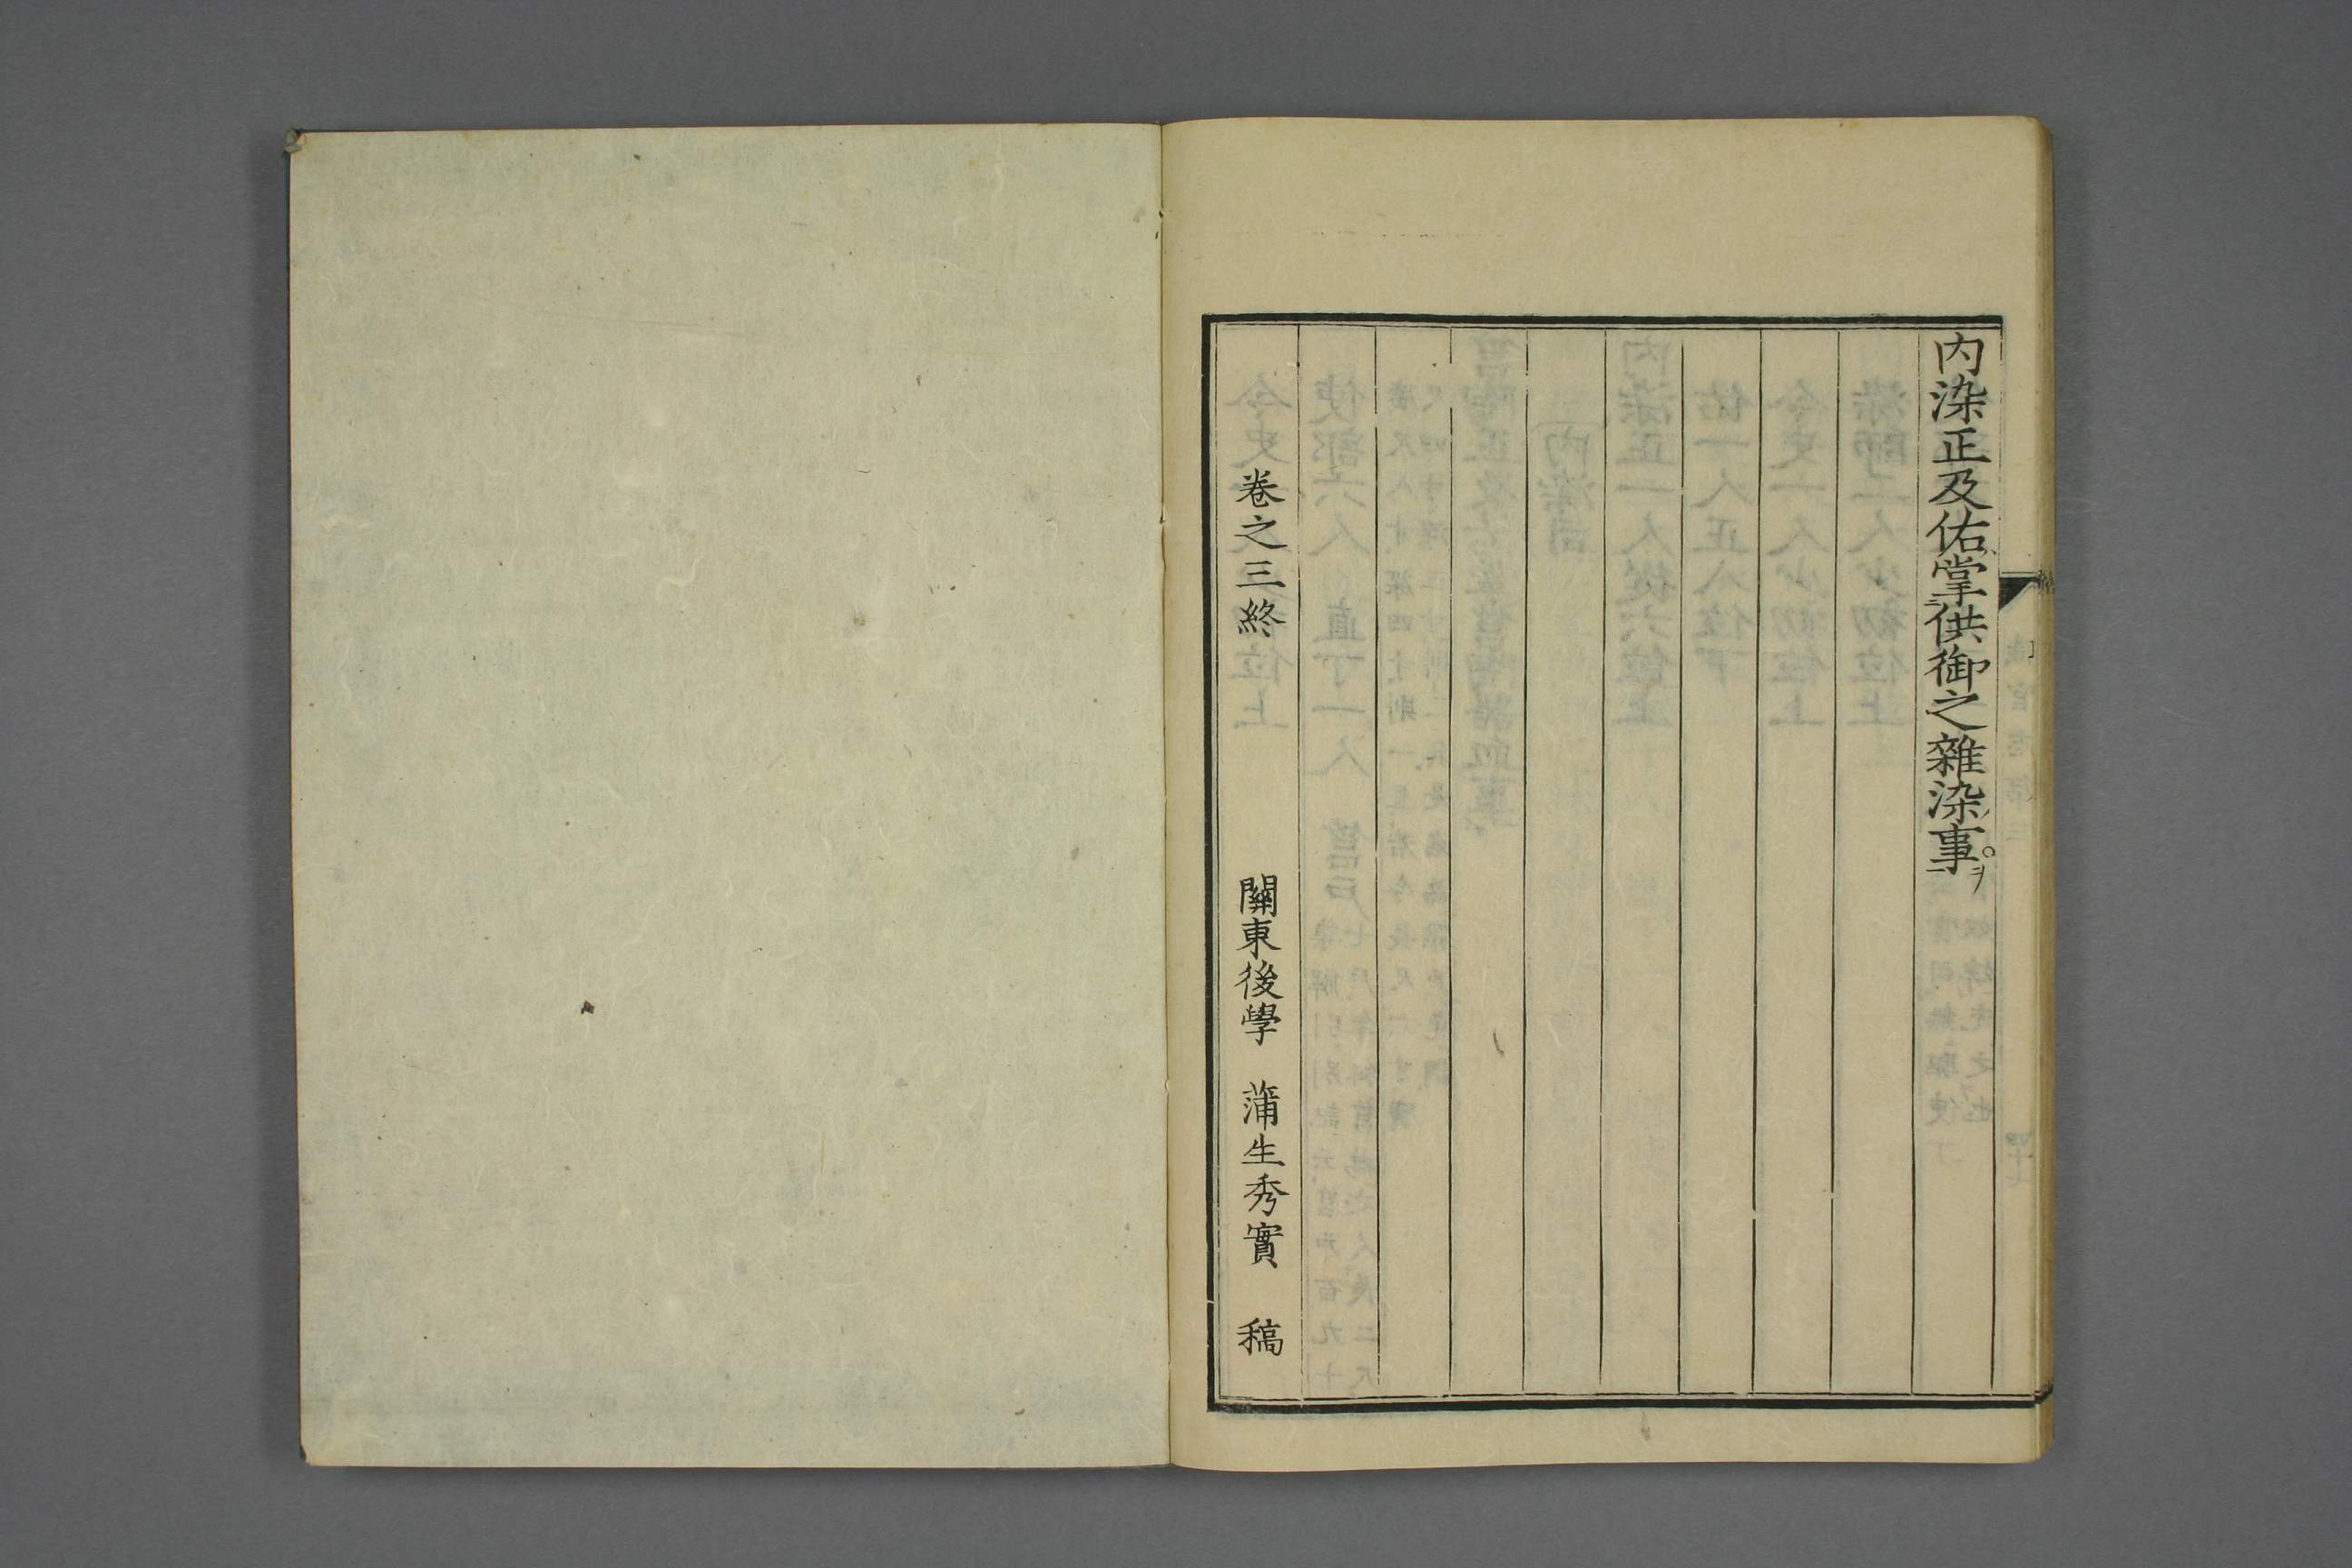 内染正及佑掌供御之雜染事。
卷之三終 關東後學 蒲生秀實 稿